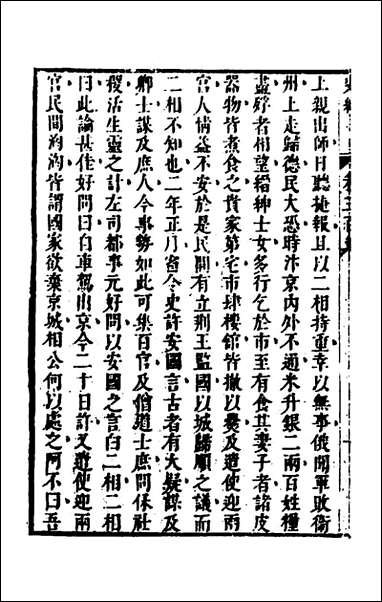 上親出師日聽捷報且以二相持重幸以無事俄聞軍敗衛
州上走歸德民大恐時汴京内外不通米升銀二兩百姓糧
盡殍者相望縉紳士女多行乞於市至有食其妻子者諸皮
器物皆煮食之貴家第宅市肆樓館皆撤以爨及遣使迎兩
宮人情益不安於是民間有立荆王監國以城歸順之議而
二相不知也二年正月省令史許安國言古者有大疑謀及
卿士謀及庶人今事勢如此可集百官及僧道士庶問保社
稷活生靈之計左司都事元好問以安國之言白二相二相
曰此論甚佳好問曰自車駕出京今二十日許又遣使迎兩
宮民間洶洶皆謂國家欲棄京城相公何以處之阿不曰吾